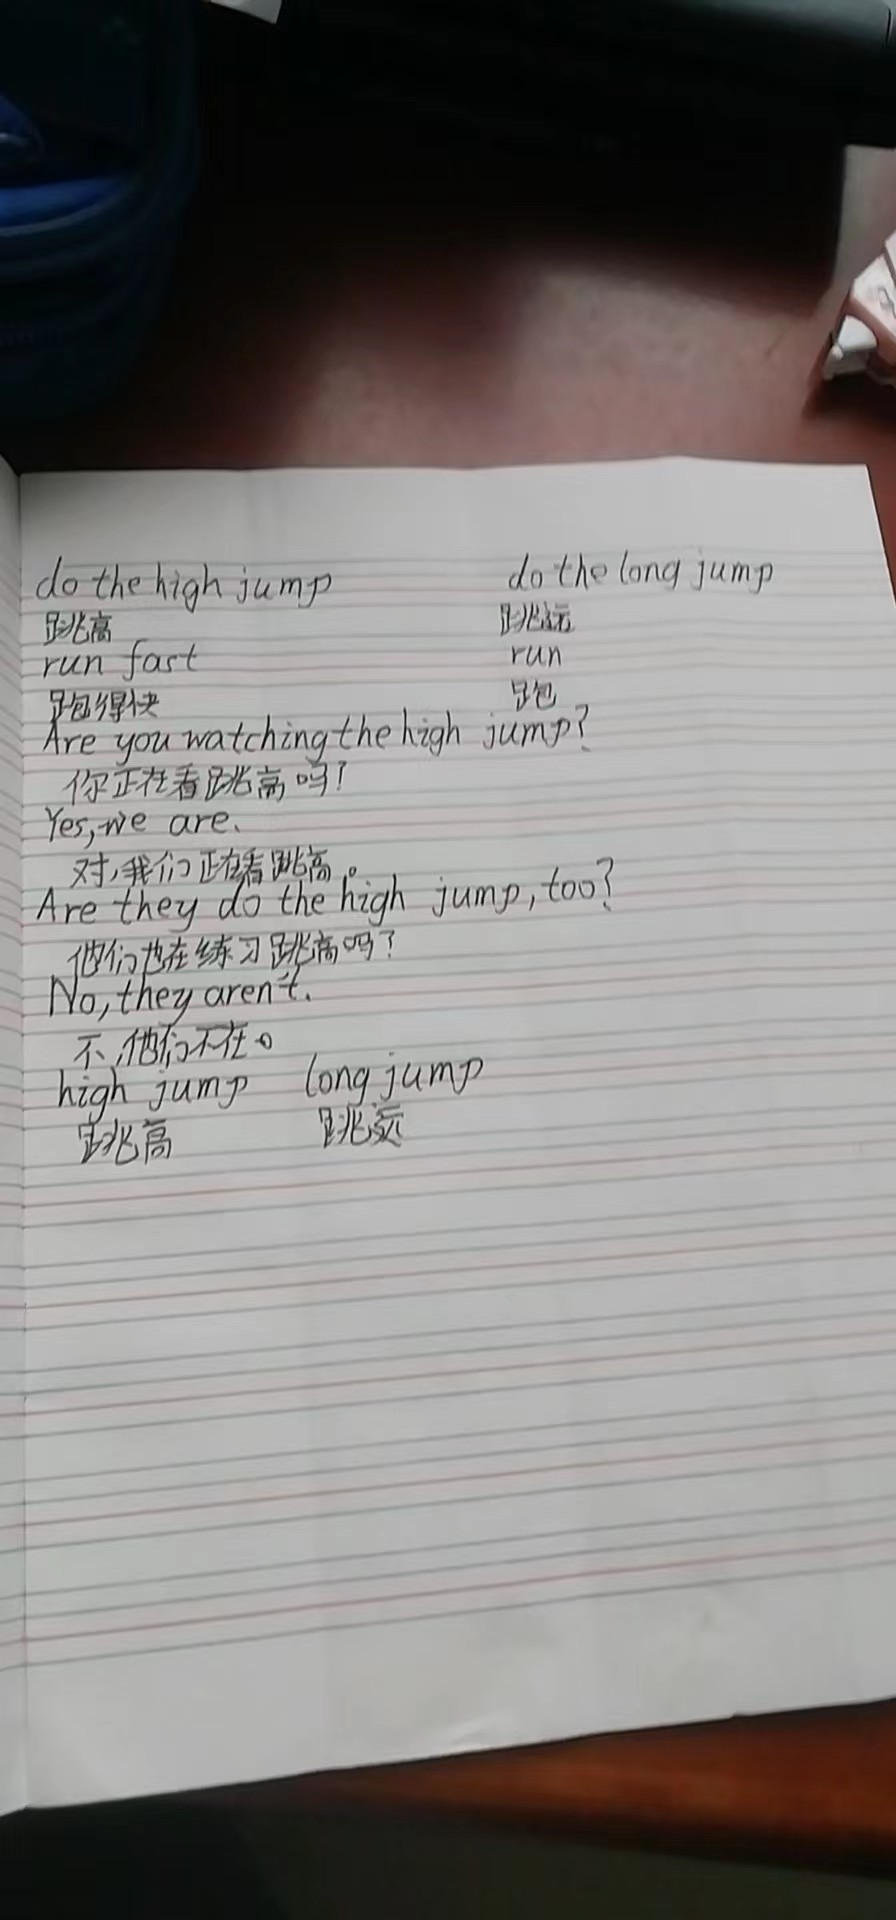 do the high jump do the long jump
跳高 跳远
run fast run
跑得快 跑
Are you watching the high jump?
你正在看跳高吗?
Yes, we are.
对,我们正在看跳高。
Are they do the high jump, too?
他们也在练习跳高吗?
No, they aren't.
不,他们不在。
high jump long jump
跳高 跳远